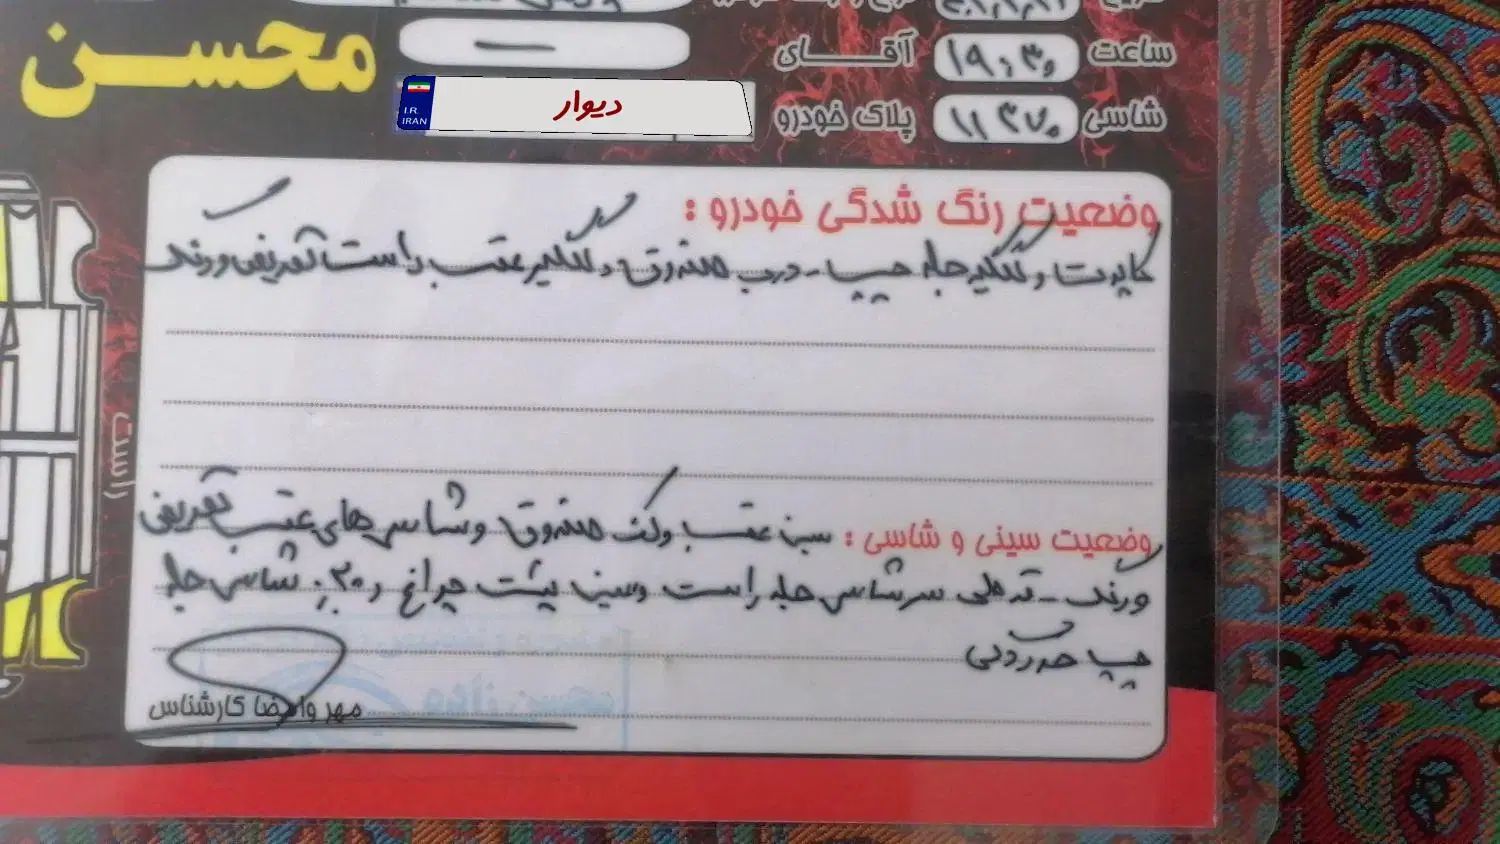 ساعت ۱۹:۳۰ آقای —
محسن
شاسی ۱۱۳۷۰ پلاک خودرو
I.R.
IRAN
دیوار
وضعیت رنگ شدگی خودرو :
کاپوت و گلگیر جلو چپ - درب صندوق و گلگیر عقب راست تعویض و رنگ
راست
وضعیت سینی و شاسی : سینی عقب و کف صندوق و شاسی های عقب تعویض
و رنگ - سر شاسی جلو راست و سینی پشت چراغ و ۲۰٪ شاسی جلو
چپ خوردگی
مهر و امضا کارشناس